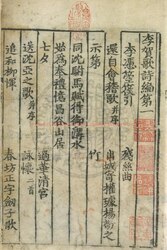 李賀歌詩編第一
李憑箜篌引
殘絲曲
還自會稽歌并序
出城寄權璩楊敬之
示弟
竹
同沈駙馬賦得御溝水
始為奉禮憶昌谷山居
七夕
過華清宮
送沈亞之歌并序
詠懷二首
追和柳惲
春坊正字劍子歌